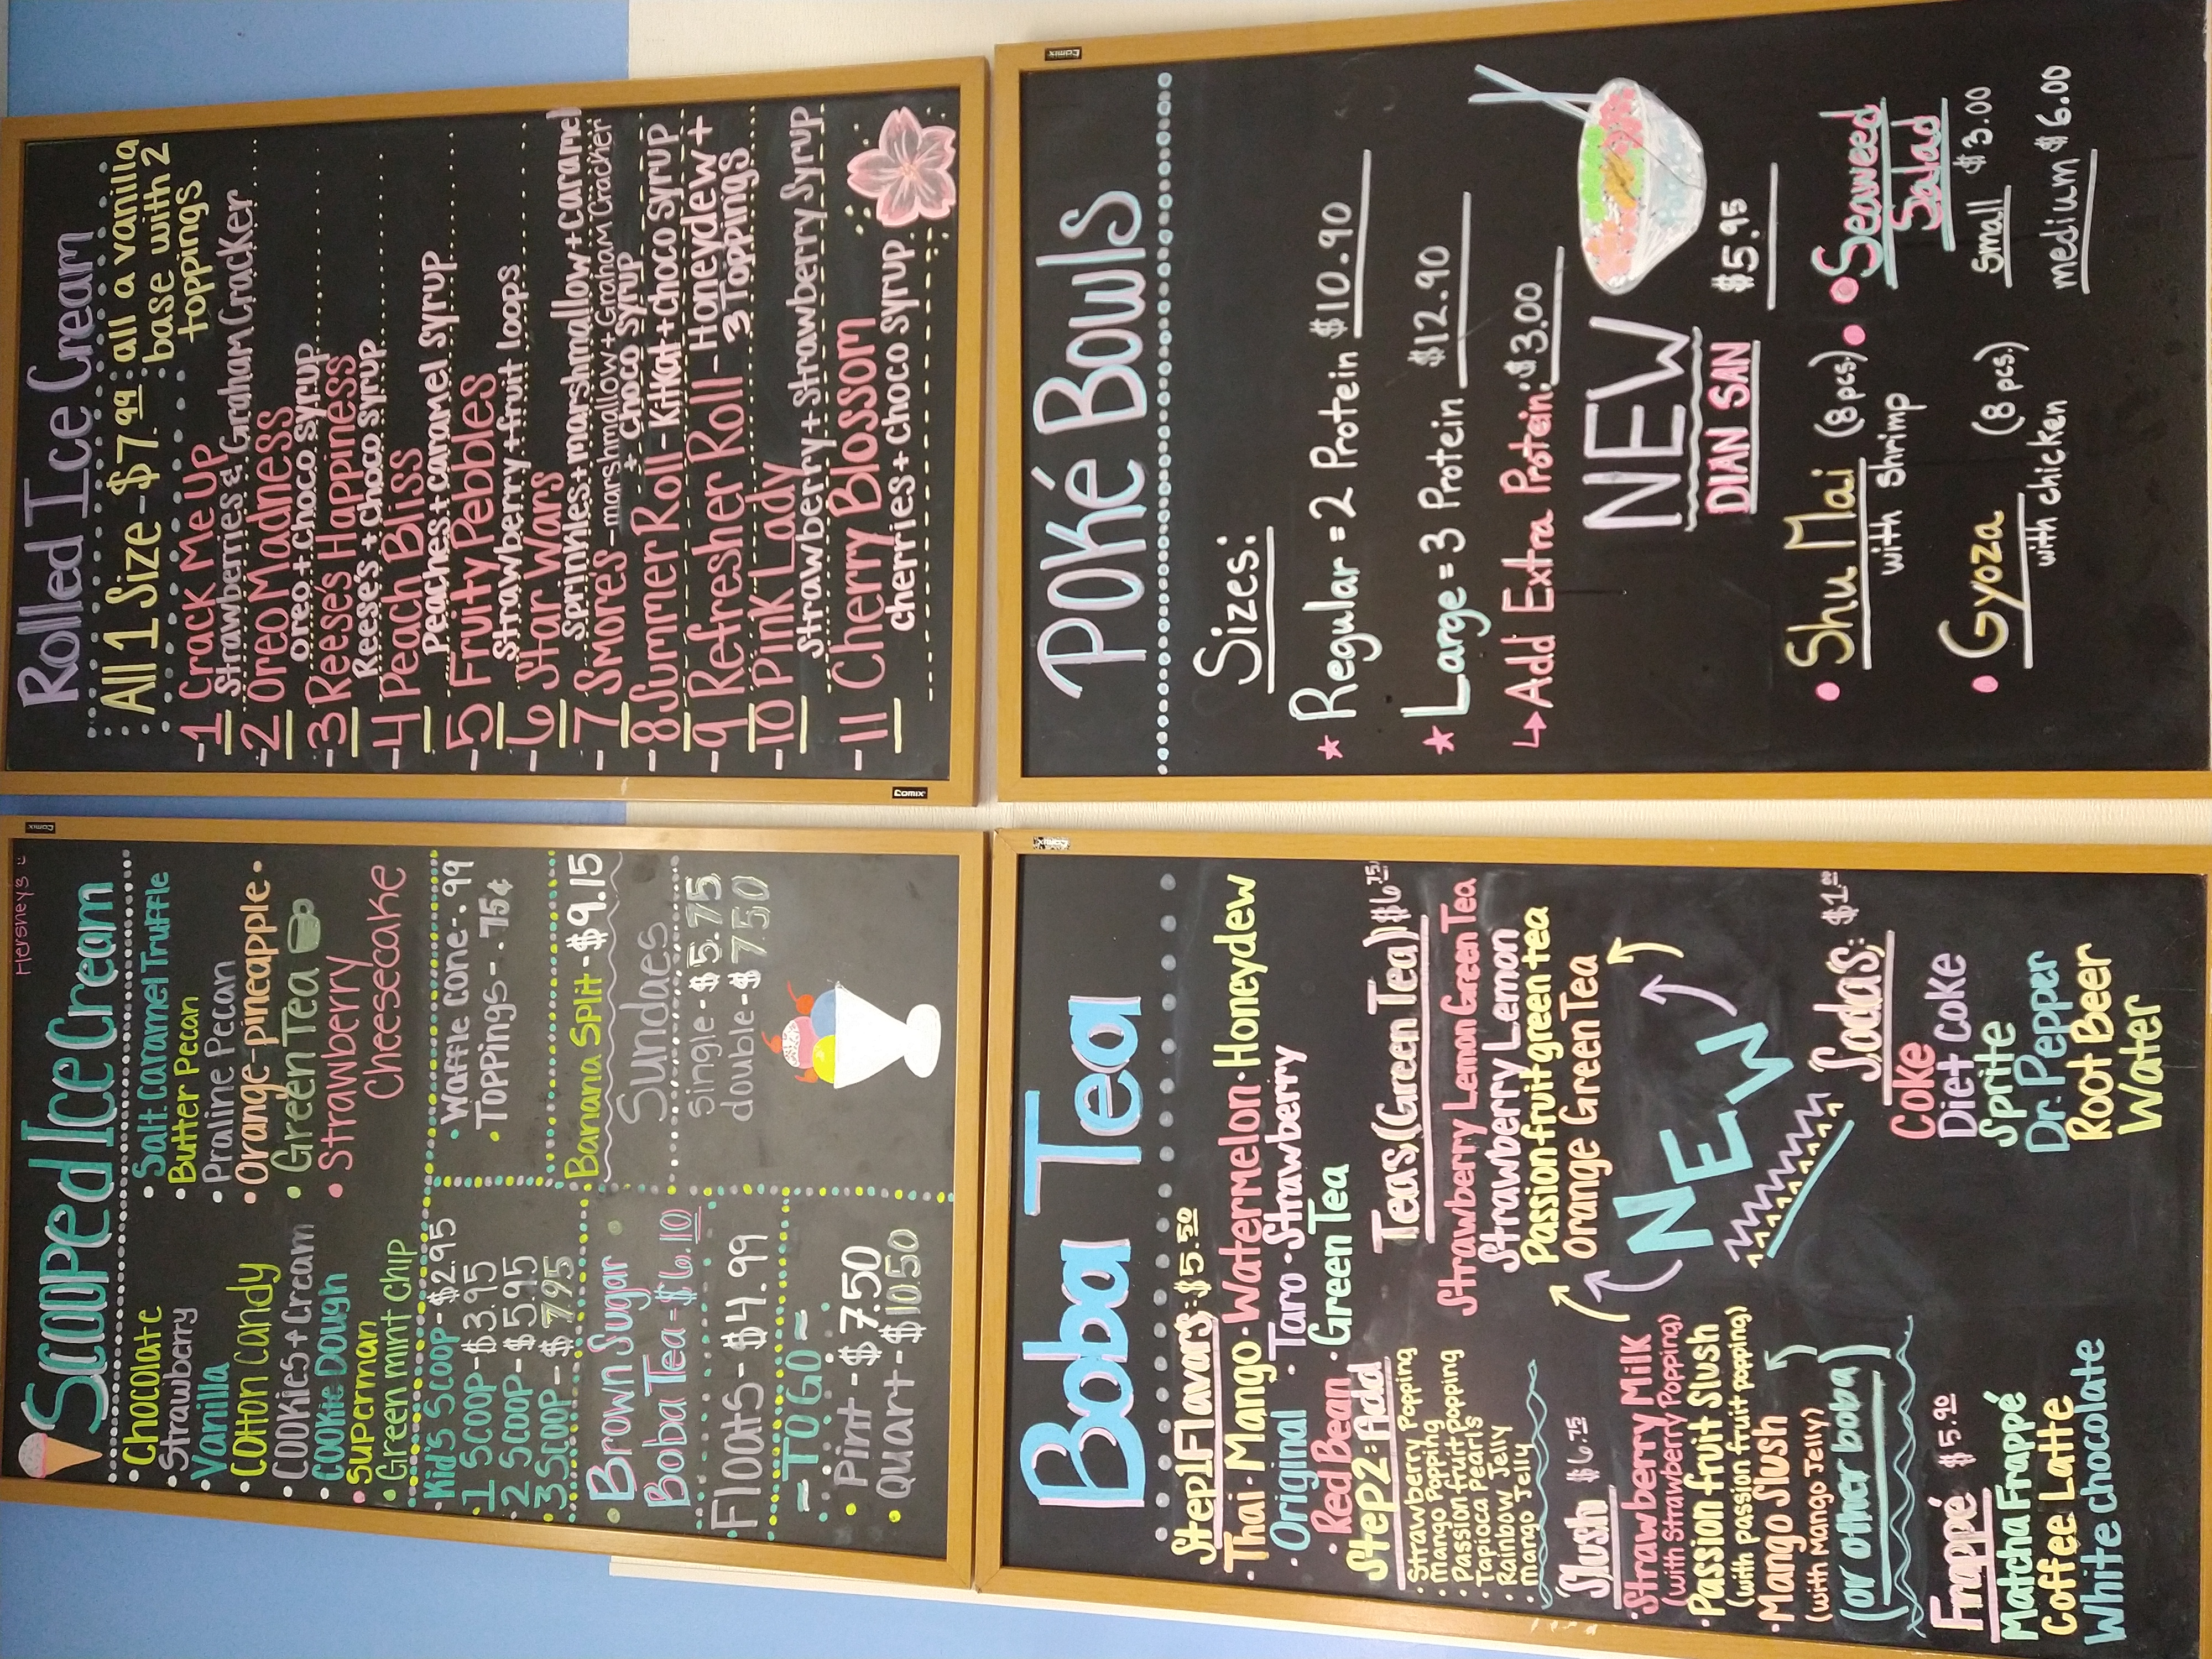 Hershey's
Scooped Ice Cream
• Chocolate
• Strawberry
• Vanilla
• Cotton Candy
• Cookies + Cream
• Cookie Dough
• Superman
• Green mint chip
• Salt Caramel Truffle
• Butter Pecan
• Praline Pecan
• Orange-pineapple •
• Green Tea
• Strawberry
Cheesecake
Kid's Scoop - $2.95
1 Scoop - $3.95
2 Scoop - $5.95
3 Scoop - $7.95
• Waffle cone - .99
• Toppings - .75¢
Brown Sugar
Boba Tea - $6.10
Banana Split - $9.15
Sundaes
Single - $5.75
double - $7.50
Floats - $4.99
= TO GO =
• Pint - $7.50
• Quart - $10.50
Comix
Rolled Ice Cream
All 1 Size - $7.99 : all a vanilla
base with 2
toppings
-1 Crack Me Up
Strawberries & Graham Cracker
-2 Oreo Madness
Oreo + Choco Syrup
-3 Reese's Happiness
Reese's + choco syrup
-4 Peach Bliss
Peaches + caramel syrup
-5 Fruity Pebbles
Strawberry + fruit loops
-6 Star Wars
Sprinkles + marshmallow + Caramel
-7 Smores - marshmallow + Graham Cracker
+ choco Syrup
-8 Summer Roll - KitKat + choco Syrup
-9 Refresher Roll - Honeydew +
3 Toppings
-10 Pink Lady
Strawberry + Strawberry Syrup
-11 Cherry Blossom
cherries + choco Syrup
Comix
Boba Tea
Step 1 Flavors: $5.50
• Thai • Mango • Watermelon • Honeydew
• Original • Taro • Strawberry
• Red Bean • Green Tea
Step 2: Add
• Strawberry Popping
• Mango Popping
• Passion fruit popping
• Tapioca Pearls
• Rainbow Jelly
• Mango Jelly
Teas (Green Tea) $6.75
Strawberry Lemon Green Tea
Strawberry Lemon
Passion fruit green tea
Orange Green Tea
Slush $6.75
• Strawberry Milk
(with Strawberry Popping)
• Passion fruit Slush
(with passion fruit popping)
• Mango Slush
(with Mango Jelly)
(or other boba)
NEW
Frappé $5.90
Matcha Frappé
Coffee Latte
White chocolate
Sodas: $1.00
Coke
Diet coke
Sprite
Dr. Pepper
Root Beer
Water
Comix
Poké Bowls
Sizes:
★ Regular = 2 Protein $10.90
★ Large = 3 Protein $12.90
↳ Add Extra Protein: $3.00
NEW
DIAN SAN $5.95
• Shu Mai (8 pcs.)
with Shrimp
• Gyoza (8 pcs.)
with chicken
• Seaweed
Salad
Small $3.00
medium $6.00
Comix